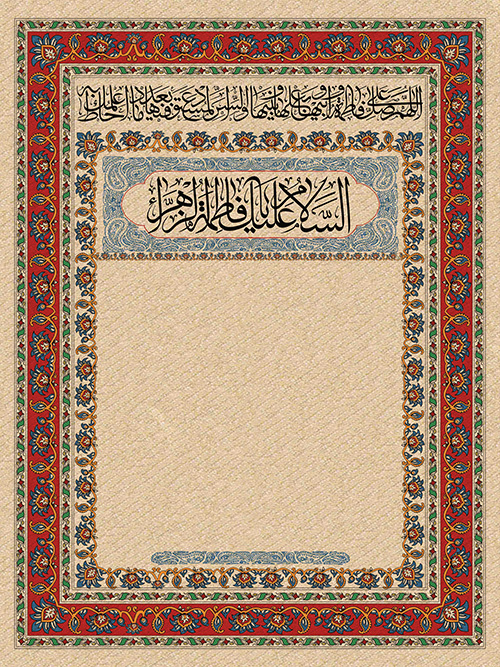 اللهم صل علی فاطمة و ابیها و بعلها و بنیها و السر المستودع فیها بعدد ما احاط به علمک
السلام علیک یا فاطمة الزهراء